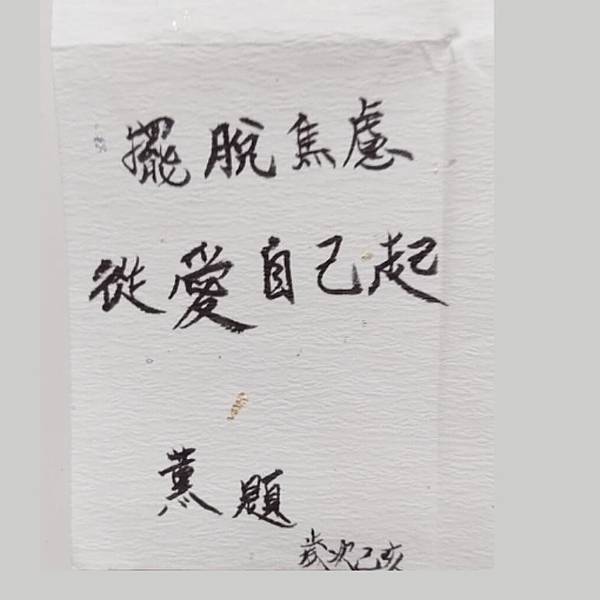 擺脫焦慮
從愛自己起
薰題
歲次己亥